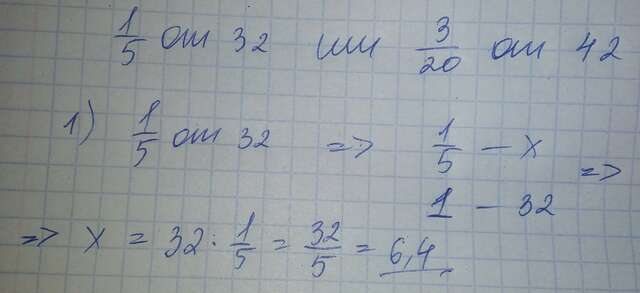 1/5 от 32 или 3/20 от 42
1) 1/5 от 32 => 1/5 - x =>
1 - 32
=> x = 32 : 1/5 = 32/5 = 6,4